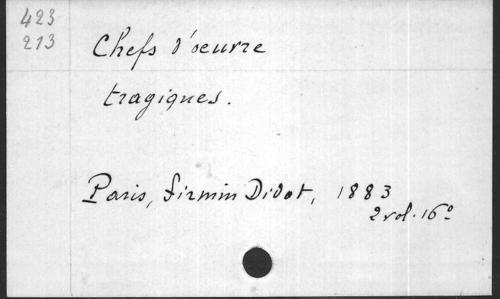 423
213
Chefs d'oeuvre
tragiques.
Paris, Firmin Didot, 1883
2 vol. 16°